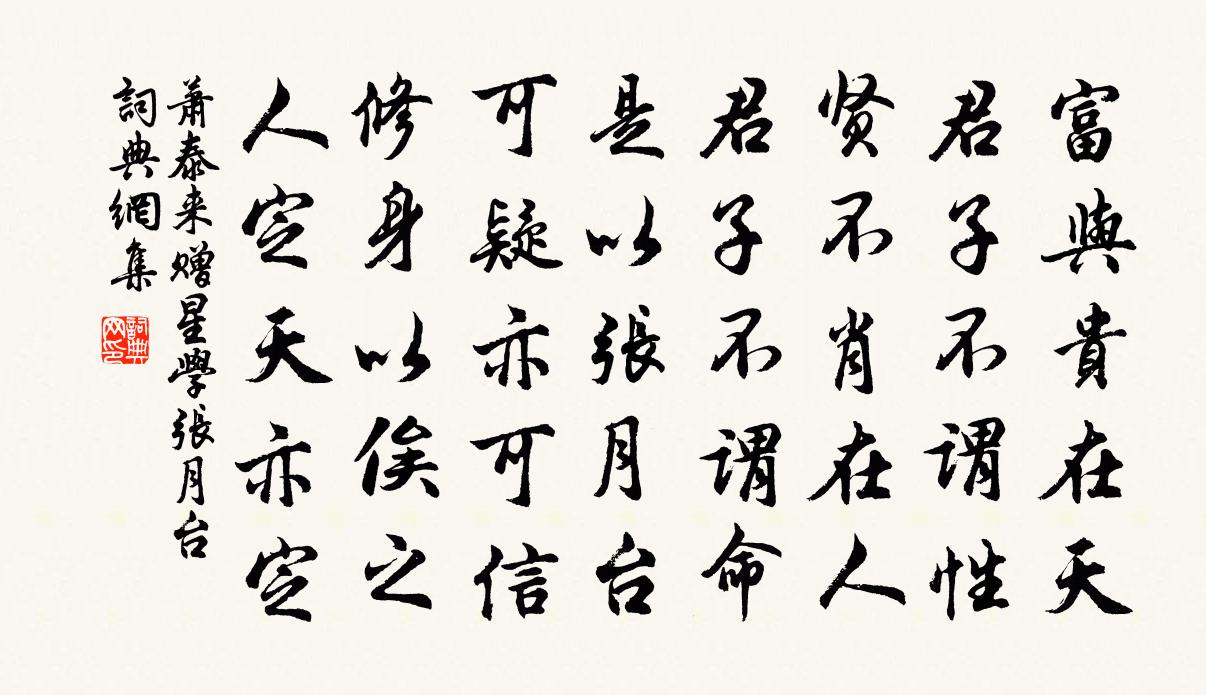 富與貴在天
君子不谓性
贤不肖在人
君子不谓命
是以張月台
可疑亦可信
修身以俟之
人定天亦定
萧泰来赠星學張月台
詞典網集
詞典网印